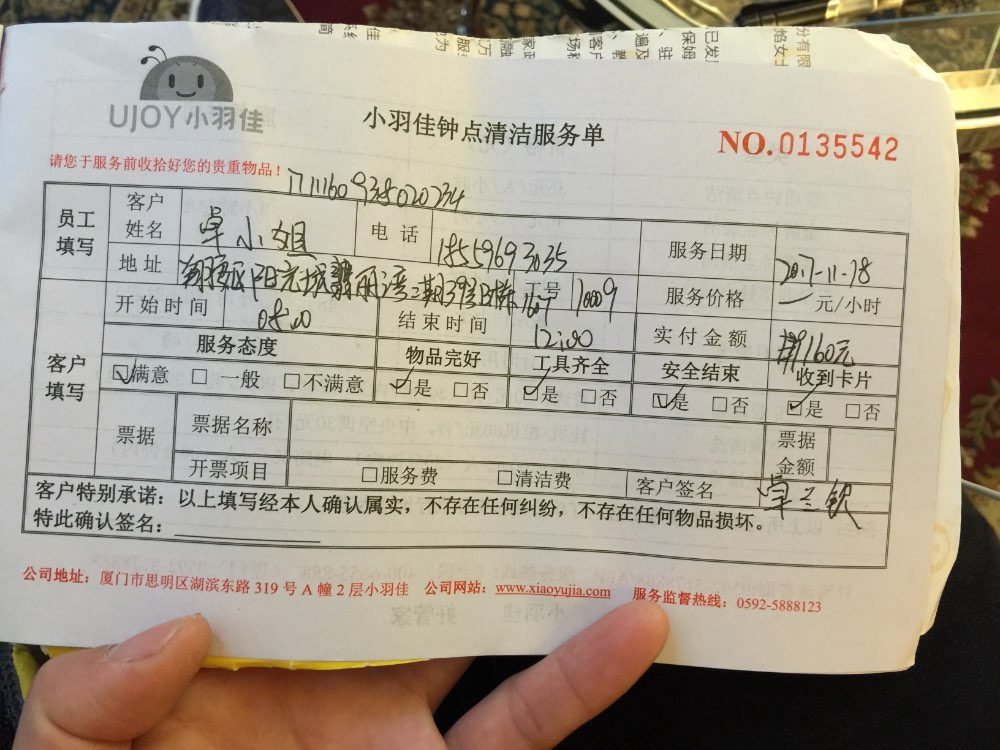 UJOY小羽佳
小羽佳钟点清洁服务单
NO.0135542
请您于服务前收拾好您的贵重物品!
员工填写
客户姓名 卓小姐 电话 18559693035 服务日期 2017-11-18
地址 阳光城翡丽湾二期39 1607 工号 70009 服务价格 — 元/小时
开始时间 08:00 结束时间 12:00 实付金额 160元
客户填写
服务态度 物品完好 工具齐全 安全结束 收到卡片
☑满意 □一般 □不满意 ☑是 □否 ☑是 □否 ☑是 □否 ☑是 □否
票据 票据名称 票据金额
开票项目 □服务费 □清洁费 客户签名 卓兰钦
客户特别承诺:以上填写经本人确认属实,不存在任何纠纷,不存在任何物品损坏。
特此确认签名:
公司地址:厦门市思明区湖滨东路 319 号 A 幢 2 层小羽佳 公司网站:www.xiaoyujia.com 服务监督热线:0592-5888123